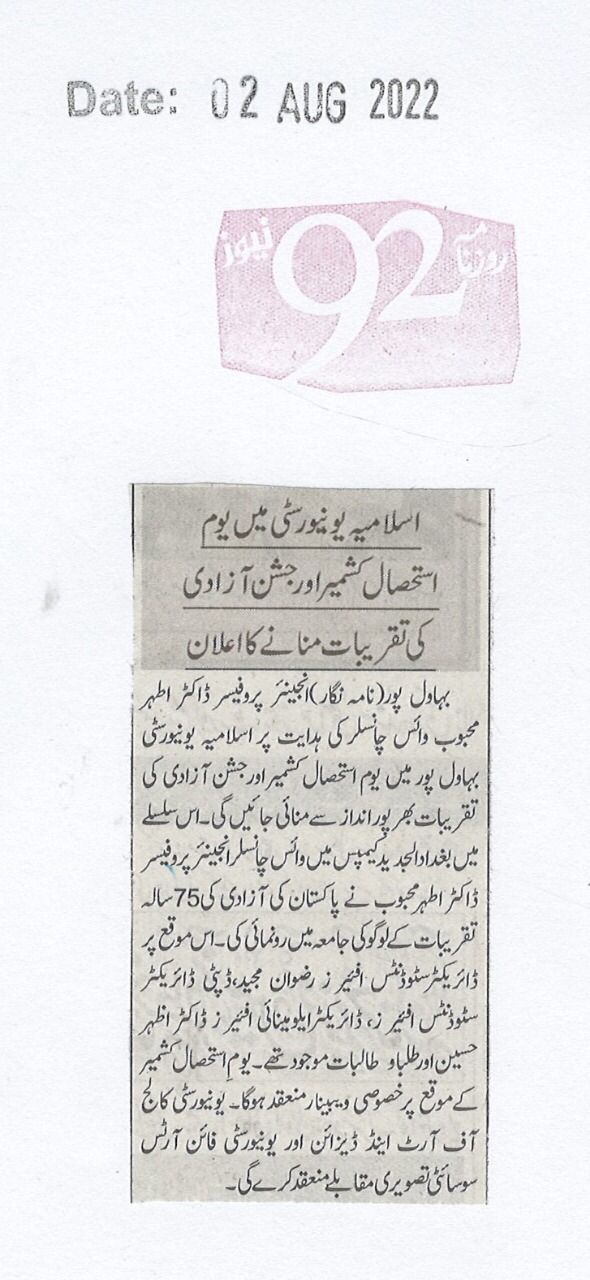 Date: 02 AUG 2022
روزنامہ 92 نیوز
اسلامیہ یونیورسٹی میں یوم
استحصال کشمیر اور جشن آزادی
کی تقریبات منانے کا اعلان
بہاول پور(نامہ نگار)انجینئر پروفیسر ڈاکٹر اطہر
محبوب وائس چانسلر کی ہدایت پر اسلامیہ یونیورسٹی
بہاول پور میں یوم استحصال کشمیر اور جشن آزادی کی
تقریبات بھرپور انداز سے منائی جائیں گی۔اس سلسلے
میں بغداد الجدید کیمپس میں وائس چانسلر انجینئر پروفیسر
ڈاکٹر اطہر محبوب نے پاکستان کی آزادی کی 75 سالہ
تقریبات کے لوگو کی جامعہ میں رونمائی کی۔اس موقع پر
ڈائریکٹر سٹوڈنٹس افیئرز رضوان مجید،ڈپٹی ڈائریکٹر
سٹوڈنٹس افیئرز، ڈائریکٹر ایلومینائی افیئرز ڈاکٹر اظہر
حسین اور طلبا و طالبات موجود تھے۔یومِ استحصال کشمیر
کے موقع پر خصوصی ویبینار منعقد ہوگا۔ یونیورسٹی کالج
آف آرٹ اینڈ ڈیزائن اور یونیورسٹی فائن آرٹس
سوسائٹی تصویری مقابلے منعقد کرے گی۔